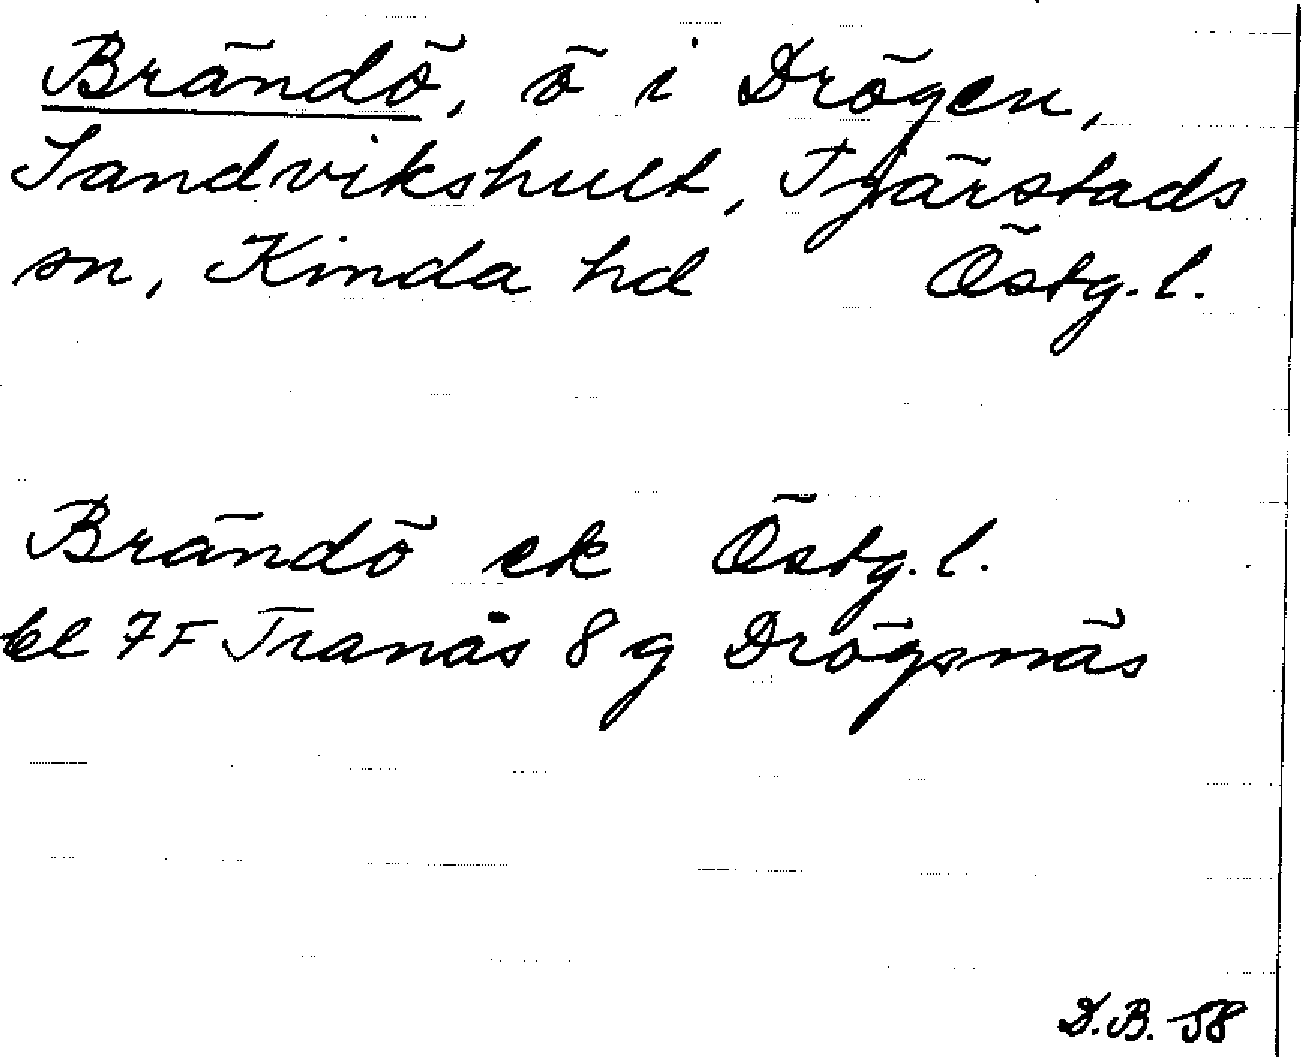 Brändö, ö i Drögen,
Sandvikshult, Tjärstads
sn, Kinda hd Östg.l.
Brändö ek Östg.l.
bl 7F Tranås 8g Drögsnäs
D.B. -58